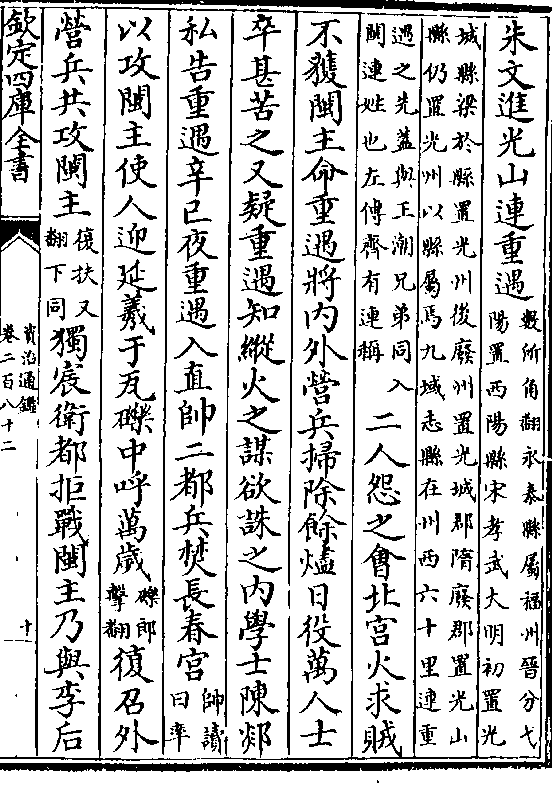 朱文進光山連重遇數所角翻永泰縣屬福州晉分弋
陽置西陽縣宋孝武大明初置光
城縣梁於縣置光州後廢州置光城郡隋廢郡置光山
縣仍置光州以縣屬焉九域志縣在州西六十里連重
遇之先蓋與王潮兄弟同入
閩連姓也左傳齊有連稱二人怨之會北宮火求賊
不獲閩主命重遇將内外營兵掃除餘燼日役萬人士
卒甚苦之又疑重遇知縱火之謀欲誅之内學士陳郯
私告重遇辛巳夜重遇入直帥二都兵焚長春宮帥讀
曰率
以攻閩主使人迎延羲于瓦礫中呼萬歲礫郎
擊翻復召外
營兵共攻閩主復扶又
翻下同獨宸衛都拒戰閩主乃與李后
欽定四庫全書
資治通鑑
卷二百八十二
十